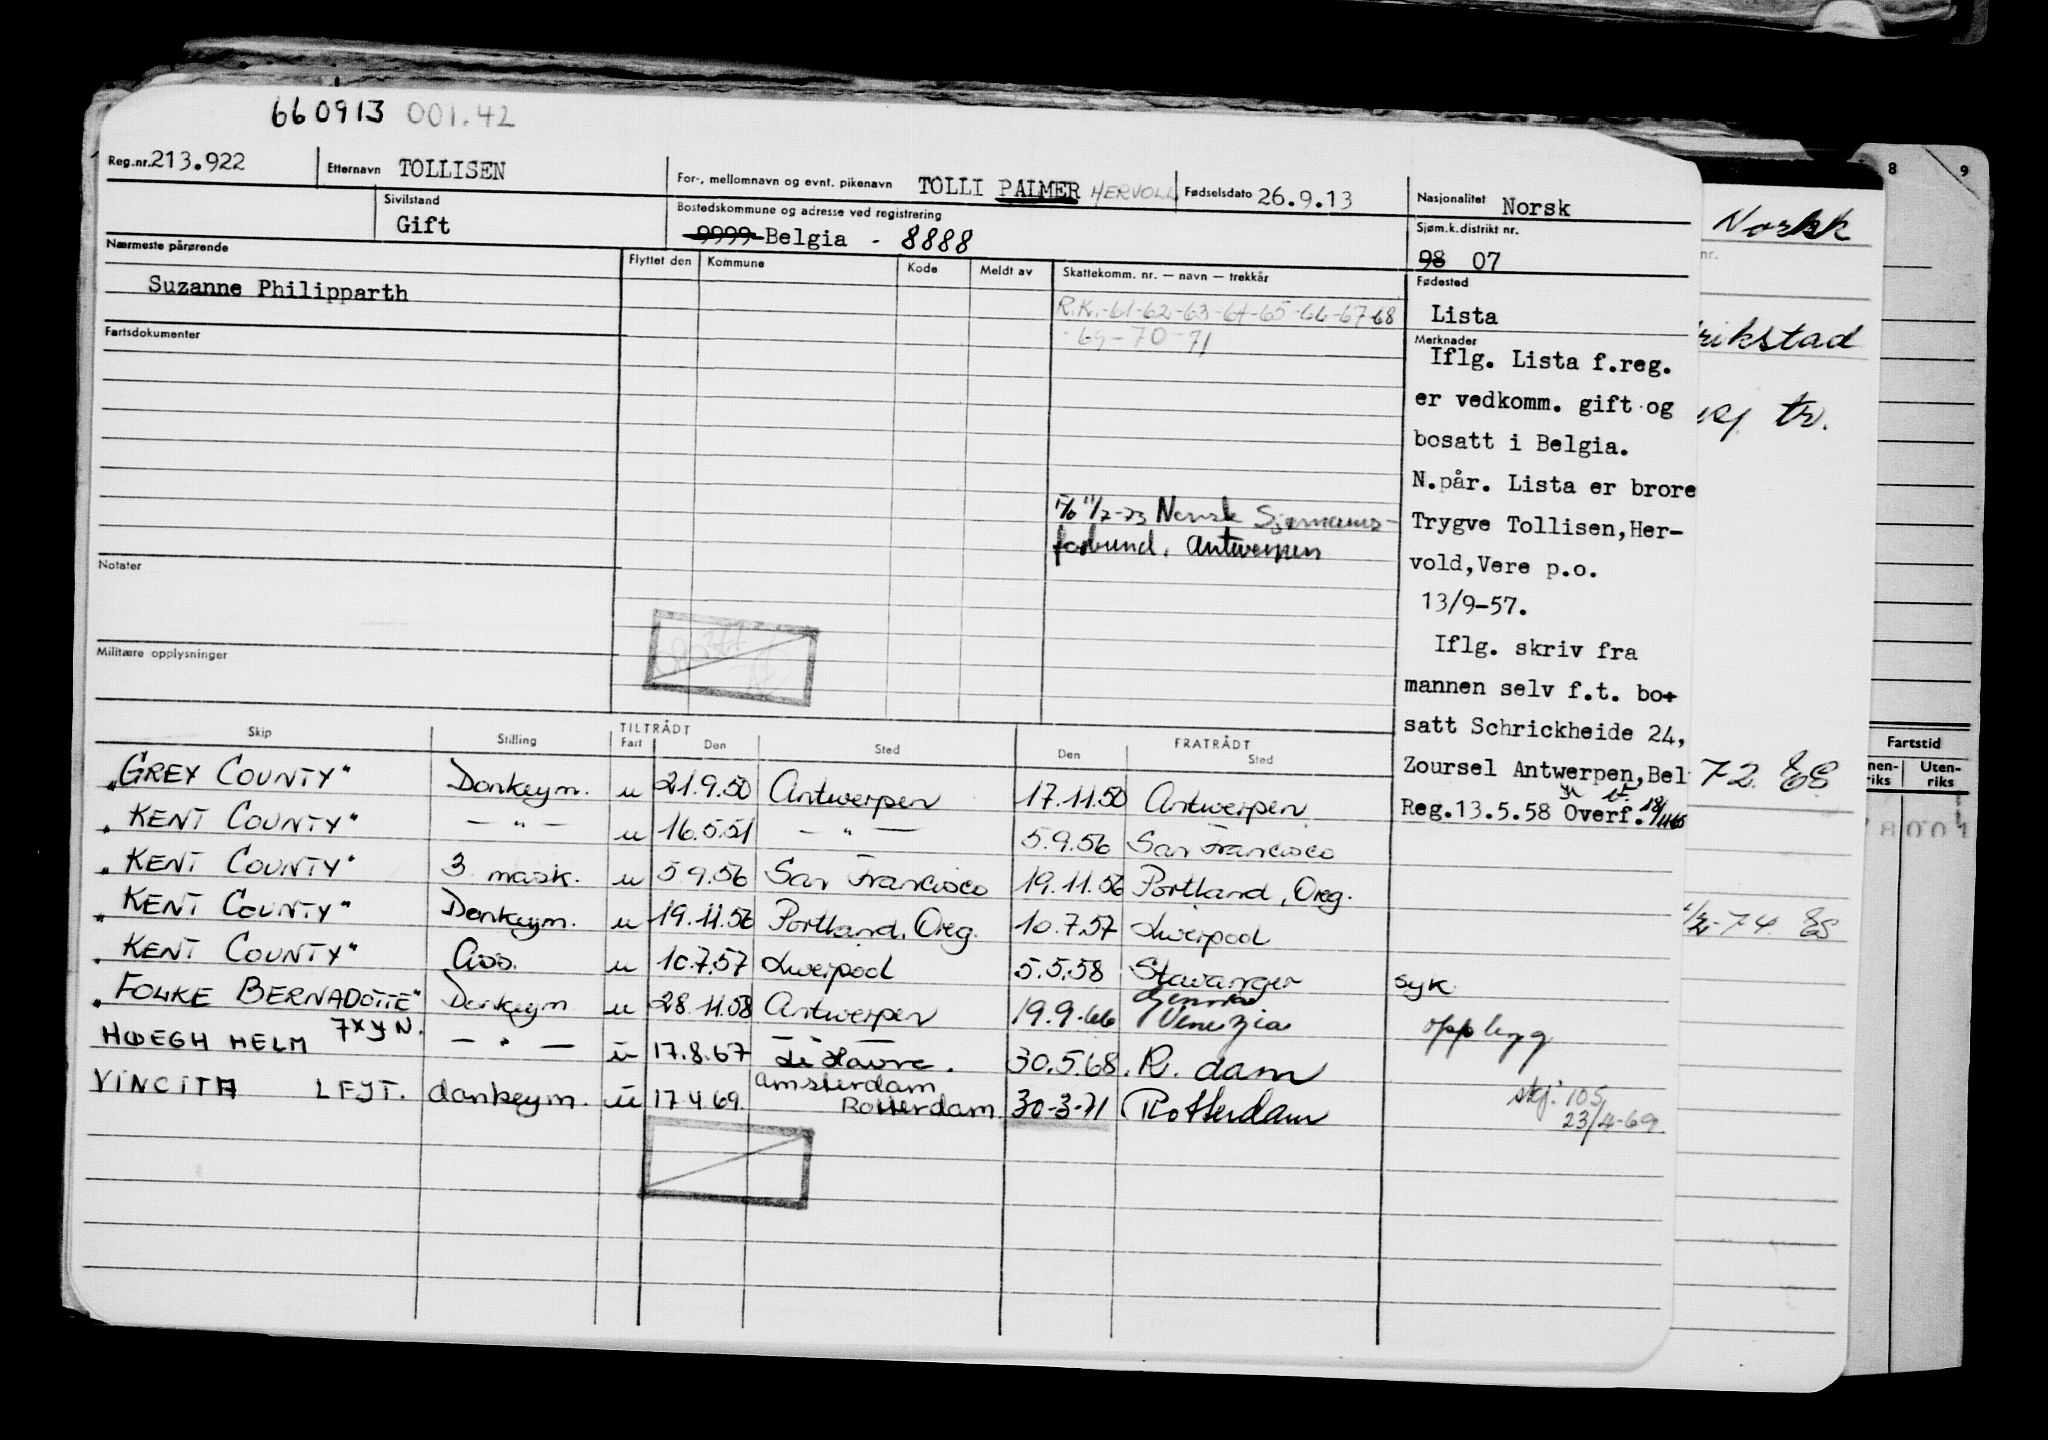 660913 001.42
Reg.nr. 213.922 Etternavn TOLLISEN For-, mellomnavn og evnt. pikenavn TOLLI PALMER HERVOLL Fødselsdato 26.9.13 Nasjonalitet Norsk
Sivilstand Gift Bostedskommune og adresse ved registrering 9999 Belgia - 8888 Sjøm.k.distrikt nr. 98 07
Nærmeste pårørende Flyttet den Kommune Kode Meldt av Skattekomm. nr. — navn — trekkår Fødested
Suzanne Philipparth
R.K.-61-62-63-64-65-66-67-68
-69-70-71
Lista
Fartsdokumenter
Merknader
Iflg. Lista f.reg.
er vedkomm. gift og
bosatt i Belgia.
N.pår. Lista er brore
Trygve Tollisen,Her-
vold,Vere p.o.
13/9-57.
Iflg. skriv fra
mannen selv f.t. bo-
satt Schrickheide 24,
Zoursel Antwerpen,Bel
Reg.13.5.58 Overf. 18/11 65
11/2-73 Norsk Sjømanns-
forbund, Antwerpen
Notater
Militære opplysninger
TILTRÅDT FRATRÅDT
Skip Stilling Fart Den Sted Den Sted
"GREY COUNTY" Donkeym. u 21.9.50 Antwerpen 17.11.50 Antwerpen
"KENT COUNTY" — " — u 16.5.51 — " — 5.9.56 San Francisco
"KENT COUNTY" 3 mask. u 5.9.56 San Francisco 19.11.56 Portland, Oreg.
"KENT COUNTY" Donkeym. u 19.11.56 Portland, Oreg. 10.7.57 Liverpool
"KENT COUNTY" Ass. u 10.7.57 Liverpool 5.5.58 Stavanger syk
"FOLKE BERNADOTTE" Donkeym u 28.11.58 Antwerpen 19.9.66 Venezia opplegg
HØEGH HELM 7XYN. — " — u 17.8.67 Le Havre. 30.5.68. R. dam
VINCITA LFJT. donkeym. u 17 4 69. Amsterdam Rotterdam 30-3-71 Rotterdam
skj. 105
23/4-69
8 9
Norsk
nr.
rikstad
tv.
Fartstid
nen-riks Uten-riks
72 ES
-74 ES